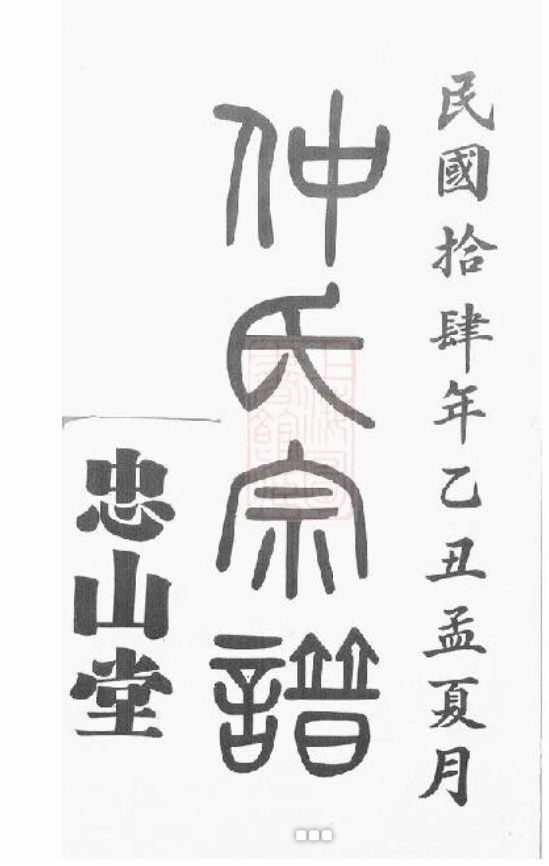 民國拾肆年乙丑孟夏月
仲氏宗譜
忠山堂